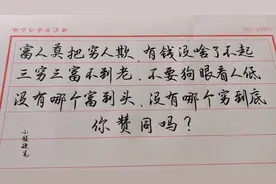 富人莫把穷人欺、有钱没啥了不起
三穷三富不到老、不要狗眼看人低
没有哪个富到头、没有哪个穷到底
你赞同吗？